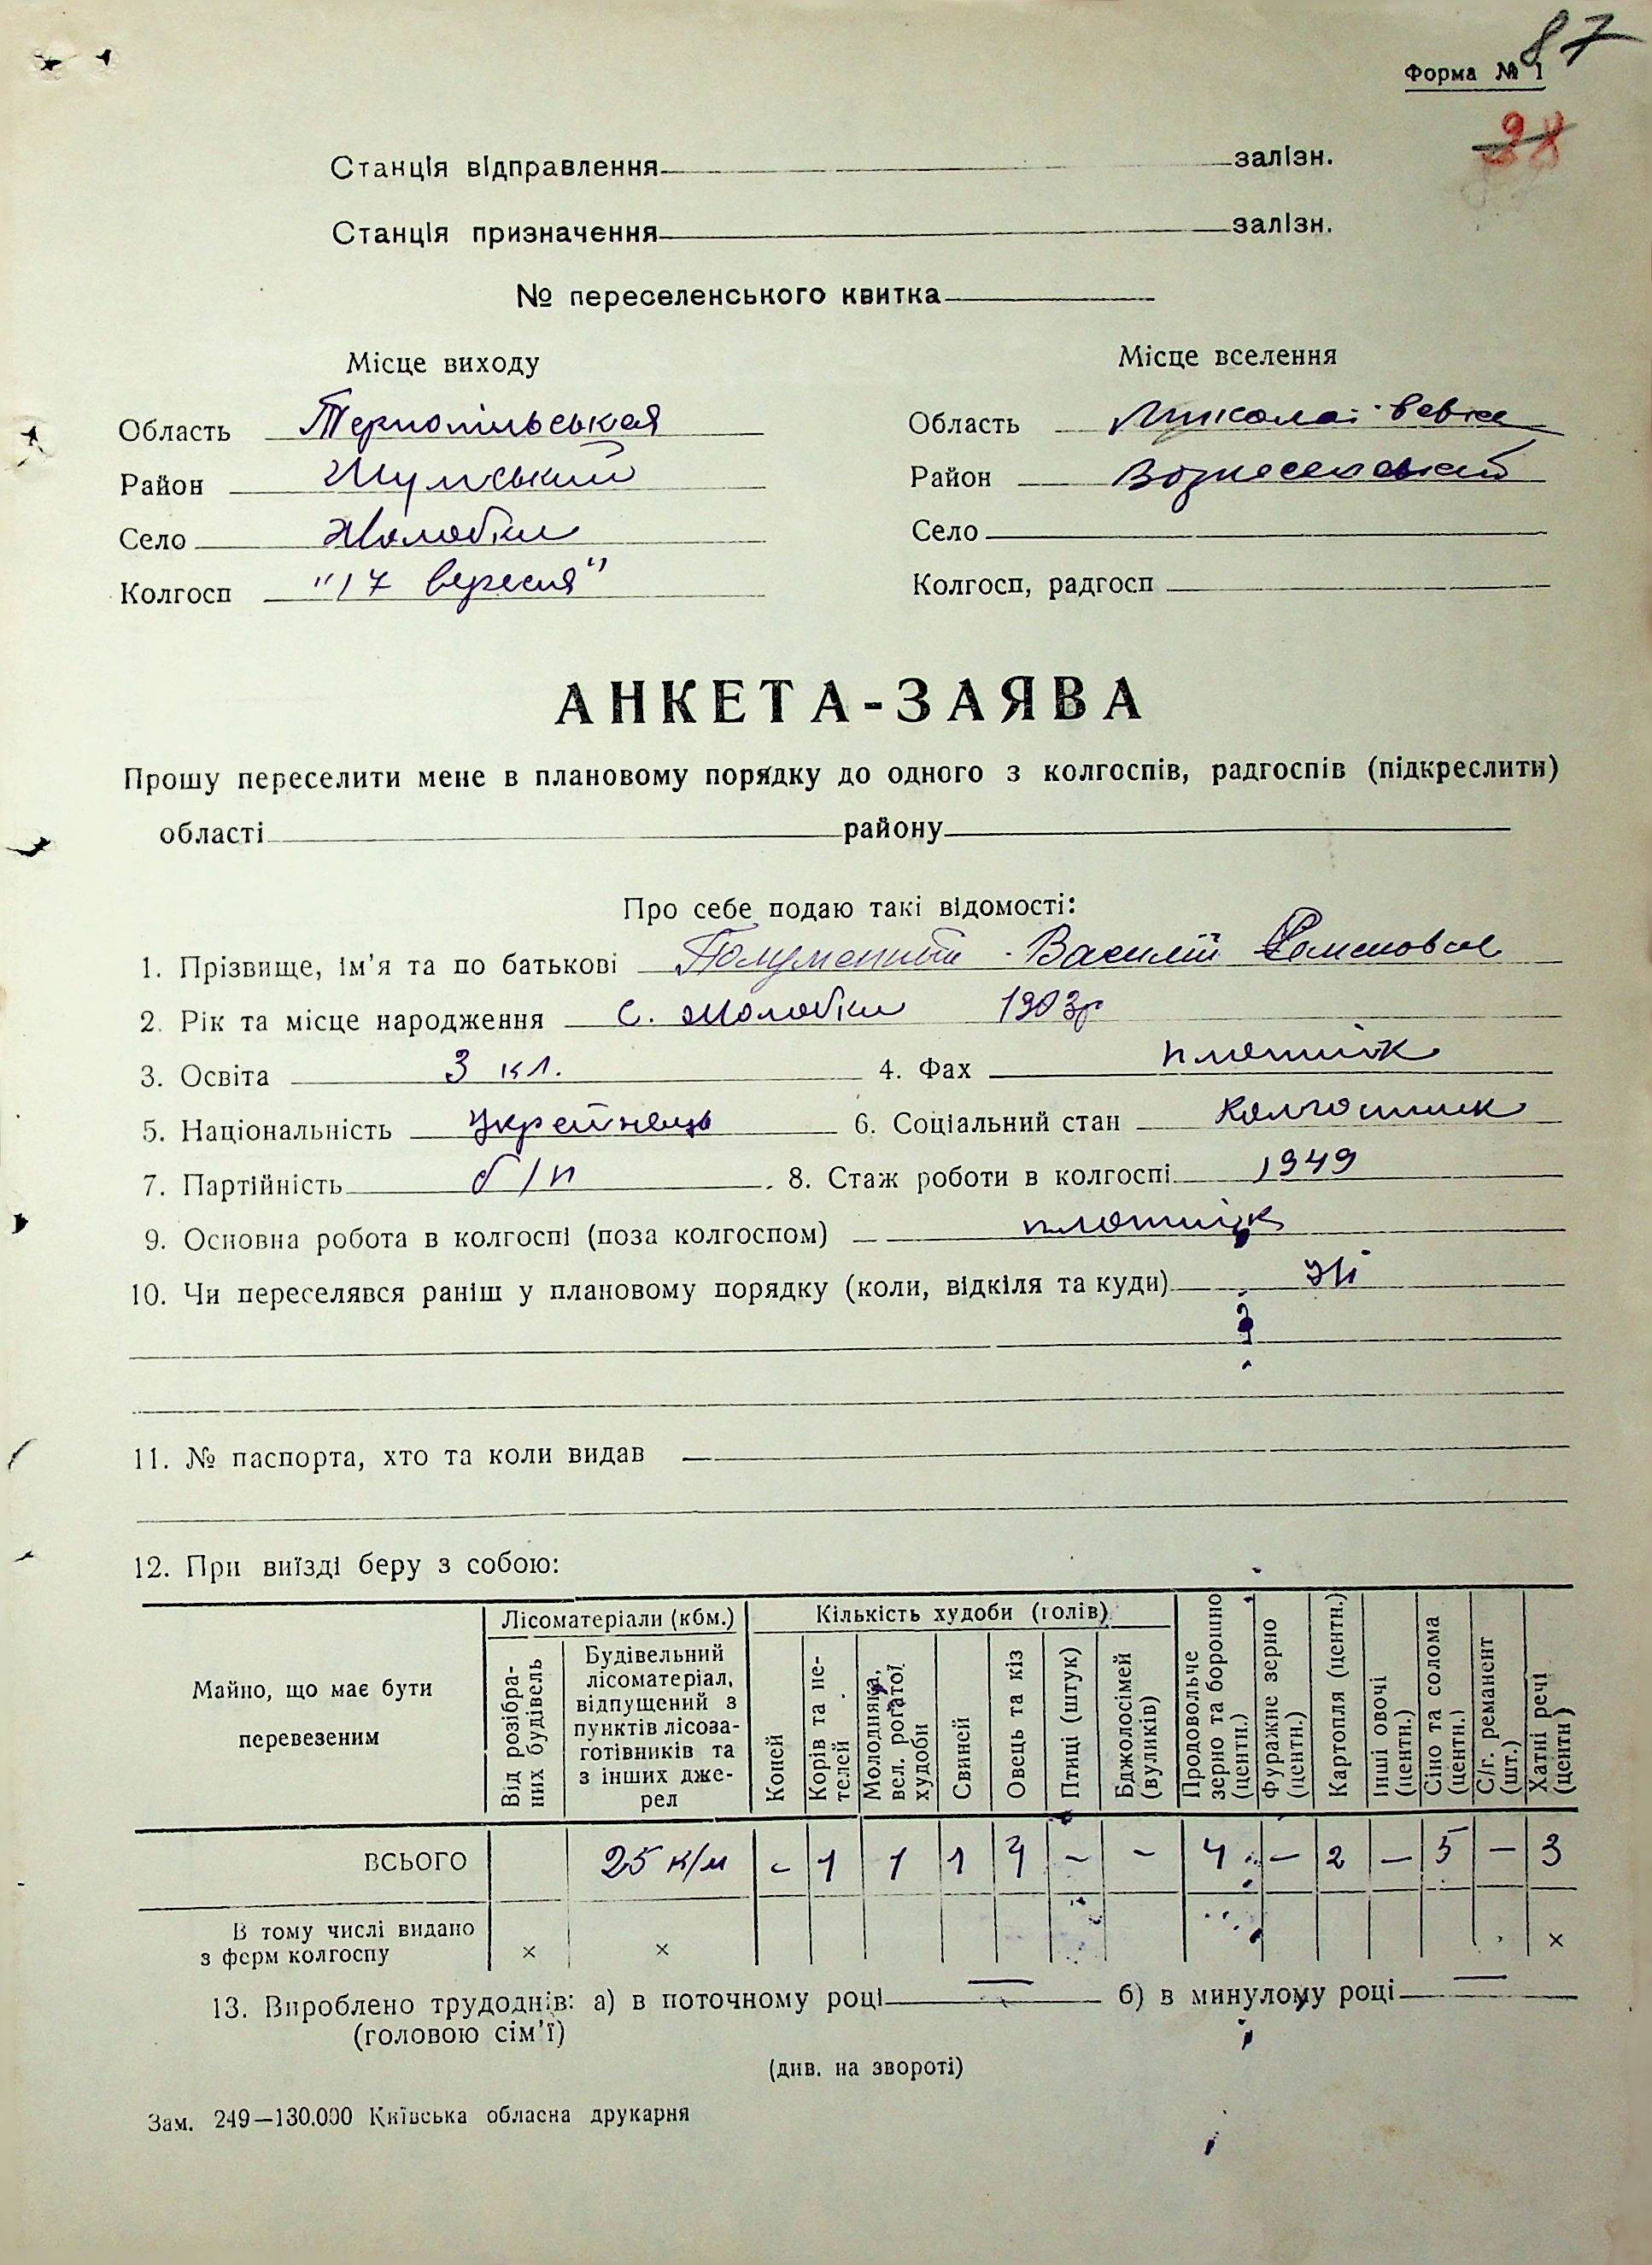 87
Форма № 1
28
Станція відправлення залізн.
Станція призначення залізн.
№ переселенського квитка
Місце виходу Місце вселення
Область Тернопільськая Область
Район Шумський Район Вознесенський
Село Жолобки Село
Колгосп "17 вересня" Колгосп, радгосп
АНКЕТА-ЗАЯВА
Прошу переселити мене в плановому порядку до одного з колгоспів, радгоспів (підкреслити)
області району
Про себе подаю такі відомості:
1. Прізвище, ім'я та по батькові Василій
2. Рік та місце народження с. Жолобки 1903р
3. Освіта 3 кл. 4. Фах плотнік
5. Національність Українець 6. Соціальний стан Колгоспник
7. Партійність б/п 8. Стаж роботи в колгоспі 1949
9. Основна робота в колгоспі (поза колгоспом) плотнік
10. Чи переселявся раніш у плановому порядку (коли, відкіля та куди) Ні
11. № паспорта, хто та коли видав
12. При виїзді беру з собою:
Майно, що має бути перевезеним
Лісоматеріали (кбм.)
Від розібраних будівель
Будівельний лісоматеріал, відпущений з пунктів лісозаготівників та з інших джерел
Кількість худоби (голів)
Коней
Корів та нетелей
Молодняка, вел. рогатої худоби
Свиней
Овець та кіз
Птиці (штук)
Бджолосімей (вуликів)
Продовольче зерно та борошно (центн.)
Фуражне зерно (центн.)
Картопля (центн.)
Інші овочі (центн.)
Сіно та солома (центн.)
С/г. реманент (шт.)
Хатні речі (центн)
ВСЬОГО 25 к/м - 1 1 1 4 - - 4 - 2 - 5 - 3
В тому числі видано
з ферм колгоспу × × ×
13. Вироблено трудоднів: а) в поточному році — б) в минулому році —
(головою сім'ї)
(див. на звороті)
Зам. 249—130.000 Київська обласна друкарня